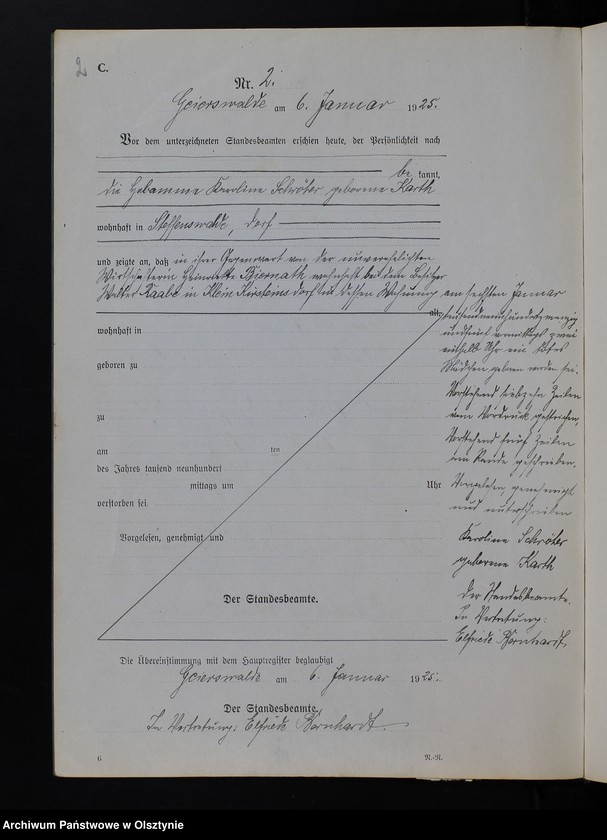 2
C.
Nr. 2.
Geierswalde am 6. Januar 1925.
Vor dem unterzeichneten Standesbeamten erschien heute, der Persönlichkeit nach
be kannt,
die Hebamme Karoline Schröter geborene Karth
wohnhaft in Steffenswalde, Dorf
und zeigte an, daß in ihrer Gegenwart von der unverehelichten
Wirtschafterin Henriette Biernath wohnhaft bei dem Besitzer
Walter Raabe in Klein Kirsteinsdorf in dessen Wohnung
am sechsten Januar
alt,
tausendneunhundertzwanzig
undfünf vormittags zwei
einhalb Uhr ein totes
Mädchen geboren worden sei.
Vorstehend siebzehn Zeilen
vom Vordruck gestrichen,
Vorstehend fünf Zeilen
am Rande geschrieben.
Vorgelesen, genehmigt
und unterschrieben
Karoline Schröter
geborene Karth
Der Standesbeamte.
In Vertretung:
Elfriede Bornhardt.
wohnhaft in
geboren zu
zu
am ten
des Jahres tausend neunhundert
mittags um Uhr
verstorben sei.
Vorgelesen, genehmigt und
Der Standesbeamte.
Die Übereinstimmung mit dem Hauptregister beglaubigt
Geierswalde am 6. Januar 1925.
Der Standesbeamte.
In Vertretung: Elfriede Bornhardt.
6
N.-N.
Archiwum Państwowe w Olsztynie